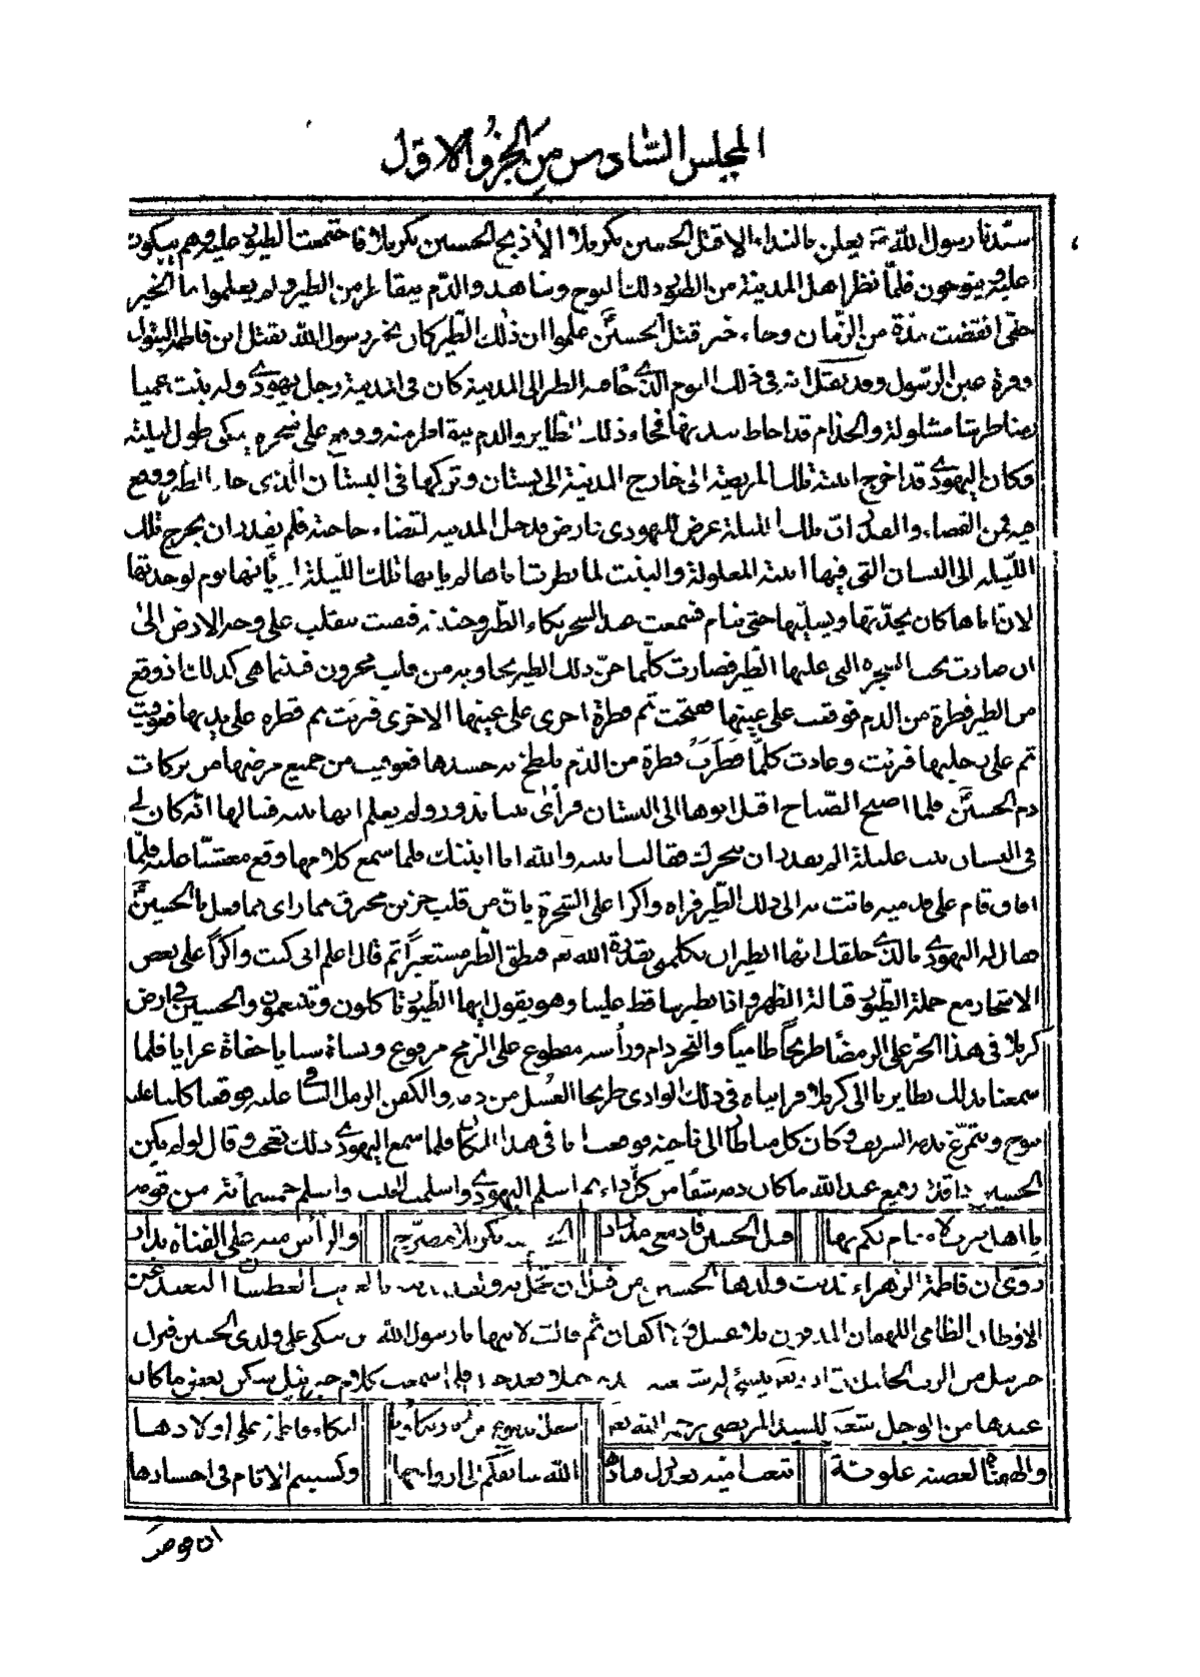 المجلس السادس من الجزو الاول
سيدنا رسول الله يعلن بالنداء الا قتل الحسين بكربلا الا ذبح الحسين بكربلا فاجتمعت الطيور عليه وهم يبكون
عليه وينوحون فلما نظر اهل المدينة من الطيور ذلك النوح وشاهدوا الدم يتقاطر من الطير ولم يعلموا ما الخبر
حتى انقضت مدة من الزمان وجاء خبر قتل الحسين علموا ان ذلك الطير كان يخبر رسول الله بقتل ابن فاطمة البتول
وقرة عين الرسول وقد نقل انه في ذلك اليوم الذي جاء فيه الطير الى المدينة كان في المدينة رجل يهودي وله بنت عميا
طرشا مشلولة والجذام قد احاط ببدنها فجاء ذلك الطاير والدم يتقاطر منه ووقع على شجرة يبكى طول ليلته
وكان اليهودي قد اخرج ابنته تلك المريضة الى خارج المدينة الى بستان وتركها في البستان الذى جاء الطير ووقع
فيه فمن القضاء والقدر ان تلك الليلة عرض لليهودى عارض فدخل المدينة لقضاء حاجته فلم يقدر ان يخرج تلك
الليلة الى البستان التي فيها ابنته المعلولة والبنت لما نظرت اباها لم ياتها تلك الليلة لم ياتها نوم لوحدتها
لان اباها كان يحدثها ويسليها حتى تنام فسمعت عند السحر بكاء الطير وحنينه فبقيت تتقلب على وجه الارض الى
ان صارت تحت الشجرة التى عليها الطير فصارت كلما حن ذلك الطير تجاوبه من قلب محزون فبينما هي كذلك اذ وقع
من الطير قطرة من الدم فوقعت على عينها ففتحت ثم قطرة اخرى على عينها الاخرى فبرئت ثم قطرة على يديها فعوفيت
ثم على رجليها فبرئت وعادت كلما قطرت قطرة من الدم تلطخ به جسدها فعوفيت من جميع مرضها من بركات
دم الحسين فلما اصبح الصباح اقبل ابوها الى البستان فرأى بنتا تدور ولم يعلم انها بنته فسالها انه كان لي
في البستان بنت عليلة لم تقدر ان تتحرك فقالت ابنته والله انا ابنتك فلما سمع كلامها وقع مغشيا عليه فلما
افاق قام على قدميه فاتت به الى ذلك الطير فراه واكرا على الشجرة يان من قلب حزين محترق مما راى مما فعل بالحسين
فقال له اليهودي بالذي خلقك ايها الطير ان تكلمني بقدرة الله تع فنطق الطير مستعبرا ثم قال اعلم انى كنت واكرا على بعض
الاشجار مع جملة الطيور قبالة الظهر واذا بطير ساقط علينا وهو يقول ايها الطيور تاكلون وتتنعمون والحسين في ارض
كربلا في هذا الحر على الرمضا طريحا ظاميا والنحر دام ورأسه مقطوع على الرمح مرفوع ونساه سبايا حفاة عرايا فلما
سمعنا بذلك تطايرنا الى كربلا فرايناه في ذلك الوادى طريحا الغسل من دمه والكفن الرمل السافي عليه فوقعنا كلنا عليه
ننوح ونتمرغ بدمه الشريف وكان كل منا طار الى ناحية فوقعت انا في هذا المكان فلما سمع اليهودي ذلك تعجب وقال لو لم يكن
الحسين ذا قدر رفيع عند الله ما كان دمه شفا من كل داء ثم اسلم اليهودي واسلمت البنت واسلم خمسمائة من قومه
يا اهل يثرب لا مقام لكم بها قتل الحسين فادمعي مدرار الجسم منه بكربلا مضرج والرأس منه على القناة يدار
روى ان فاطمة الزهراء ندبت ولدها الحسين من قبل ان تحمل به
الاوطان الظامى اللهفان المدفون بلا غسل ولا اكفان ثم قالت لابيها يا رسول الله من يبكى على ولدى الحسين فنزل
جبرئيل من الرب الجليل فلما سمعت كلام جبرئيل سكن بعض ما كان
عندها من الوجل شعر للسيد المرتضى رحمه الله تع ابكاء فاطمة على اولادها
والهفتاه لعصبة علوية تبعت امية بعد ذل قيادها الله سابقكم الى ارواحها وكسبتم الاثام في اجسادها
ان قومر